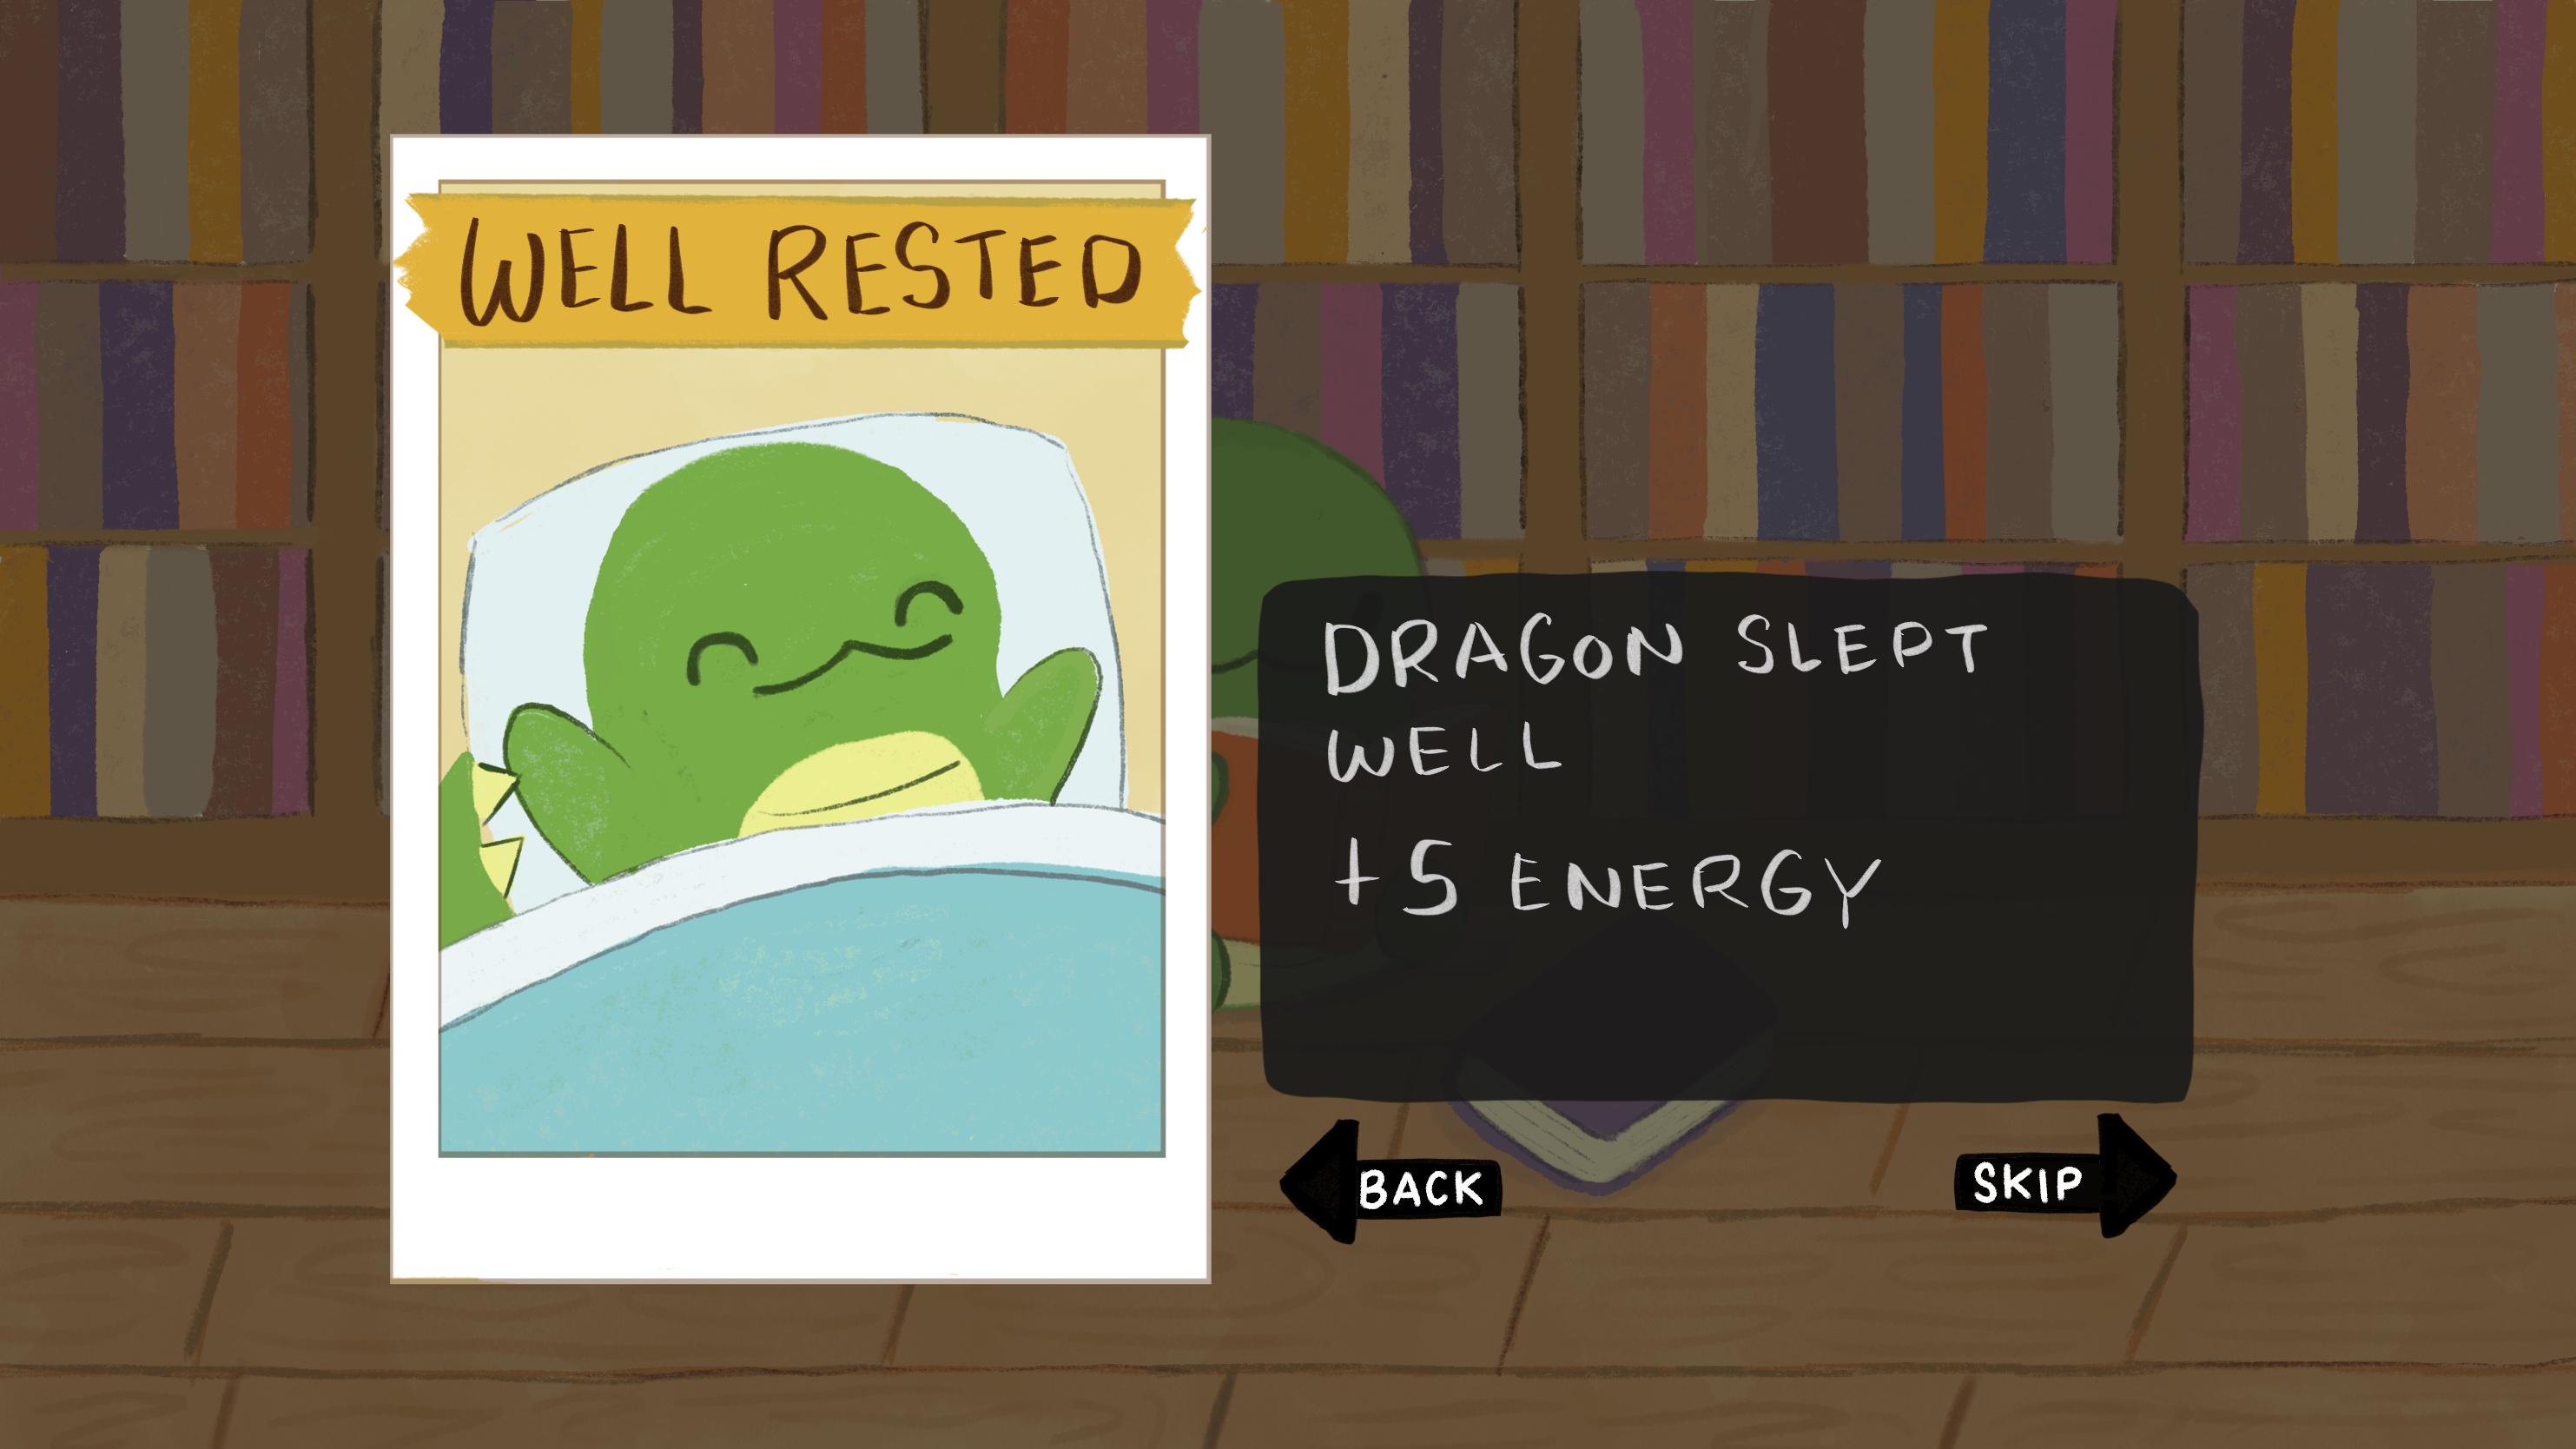 WELL RESTED
DRAGON SLEPT
WELL
+5 ENERGY
BACK
SKIP